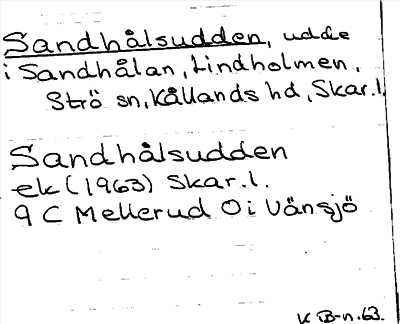 Sandhålsudden, udde
i Sandhålan, Lindholmen,
Strö sn, Kållands hd, Skar.l.
Sandhålsudden
ek (1963) Skar.l.
9 C Mellerud Ö i Vänsjö
K B-n. 63.